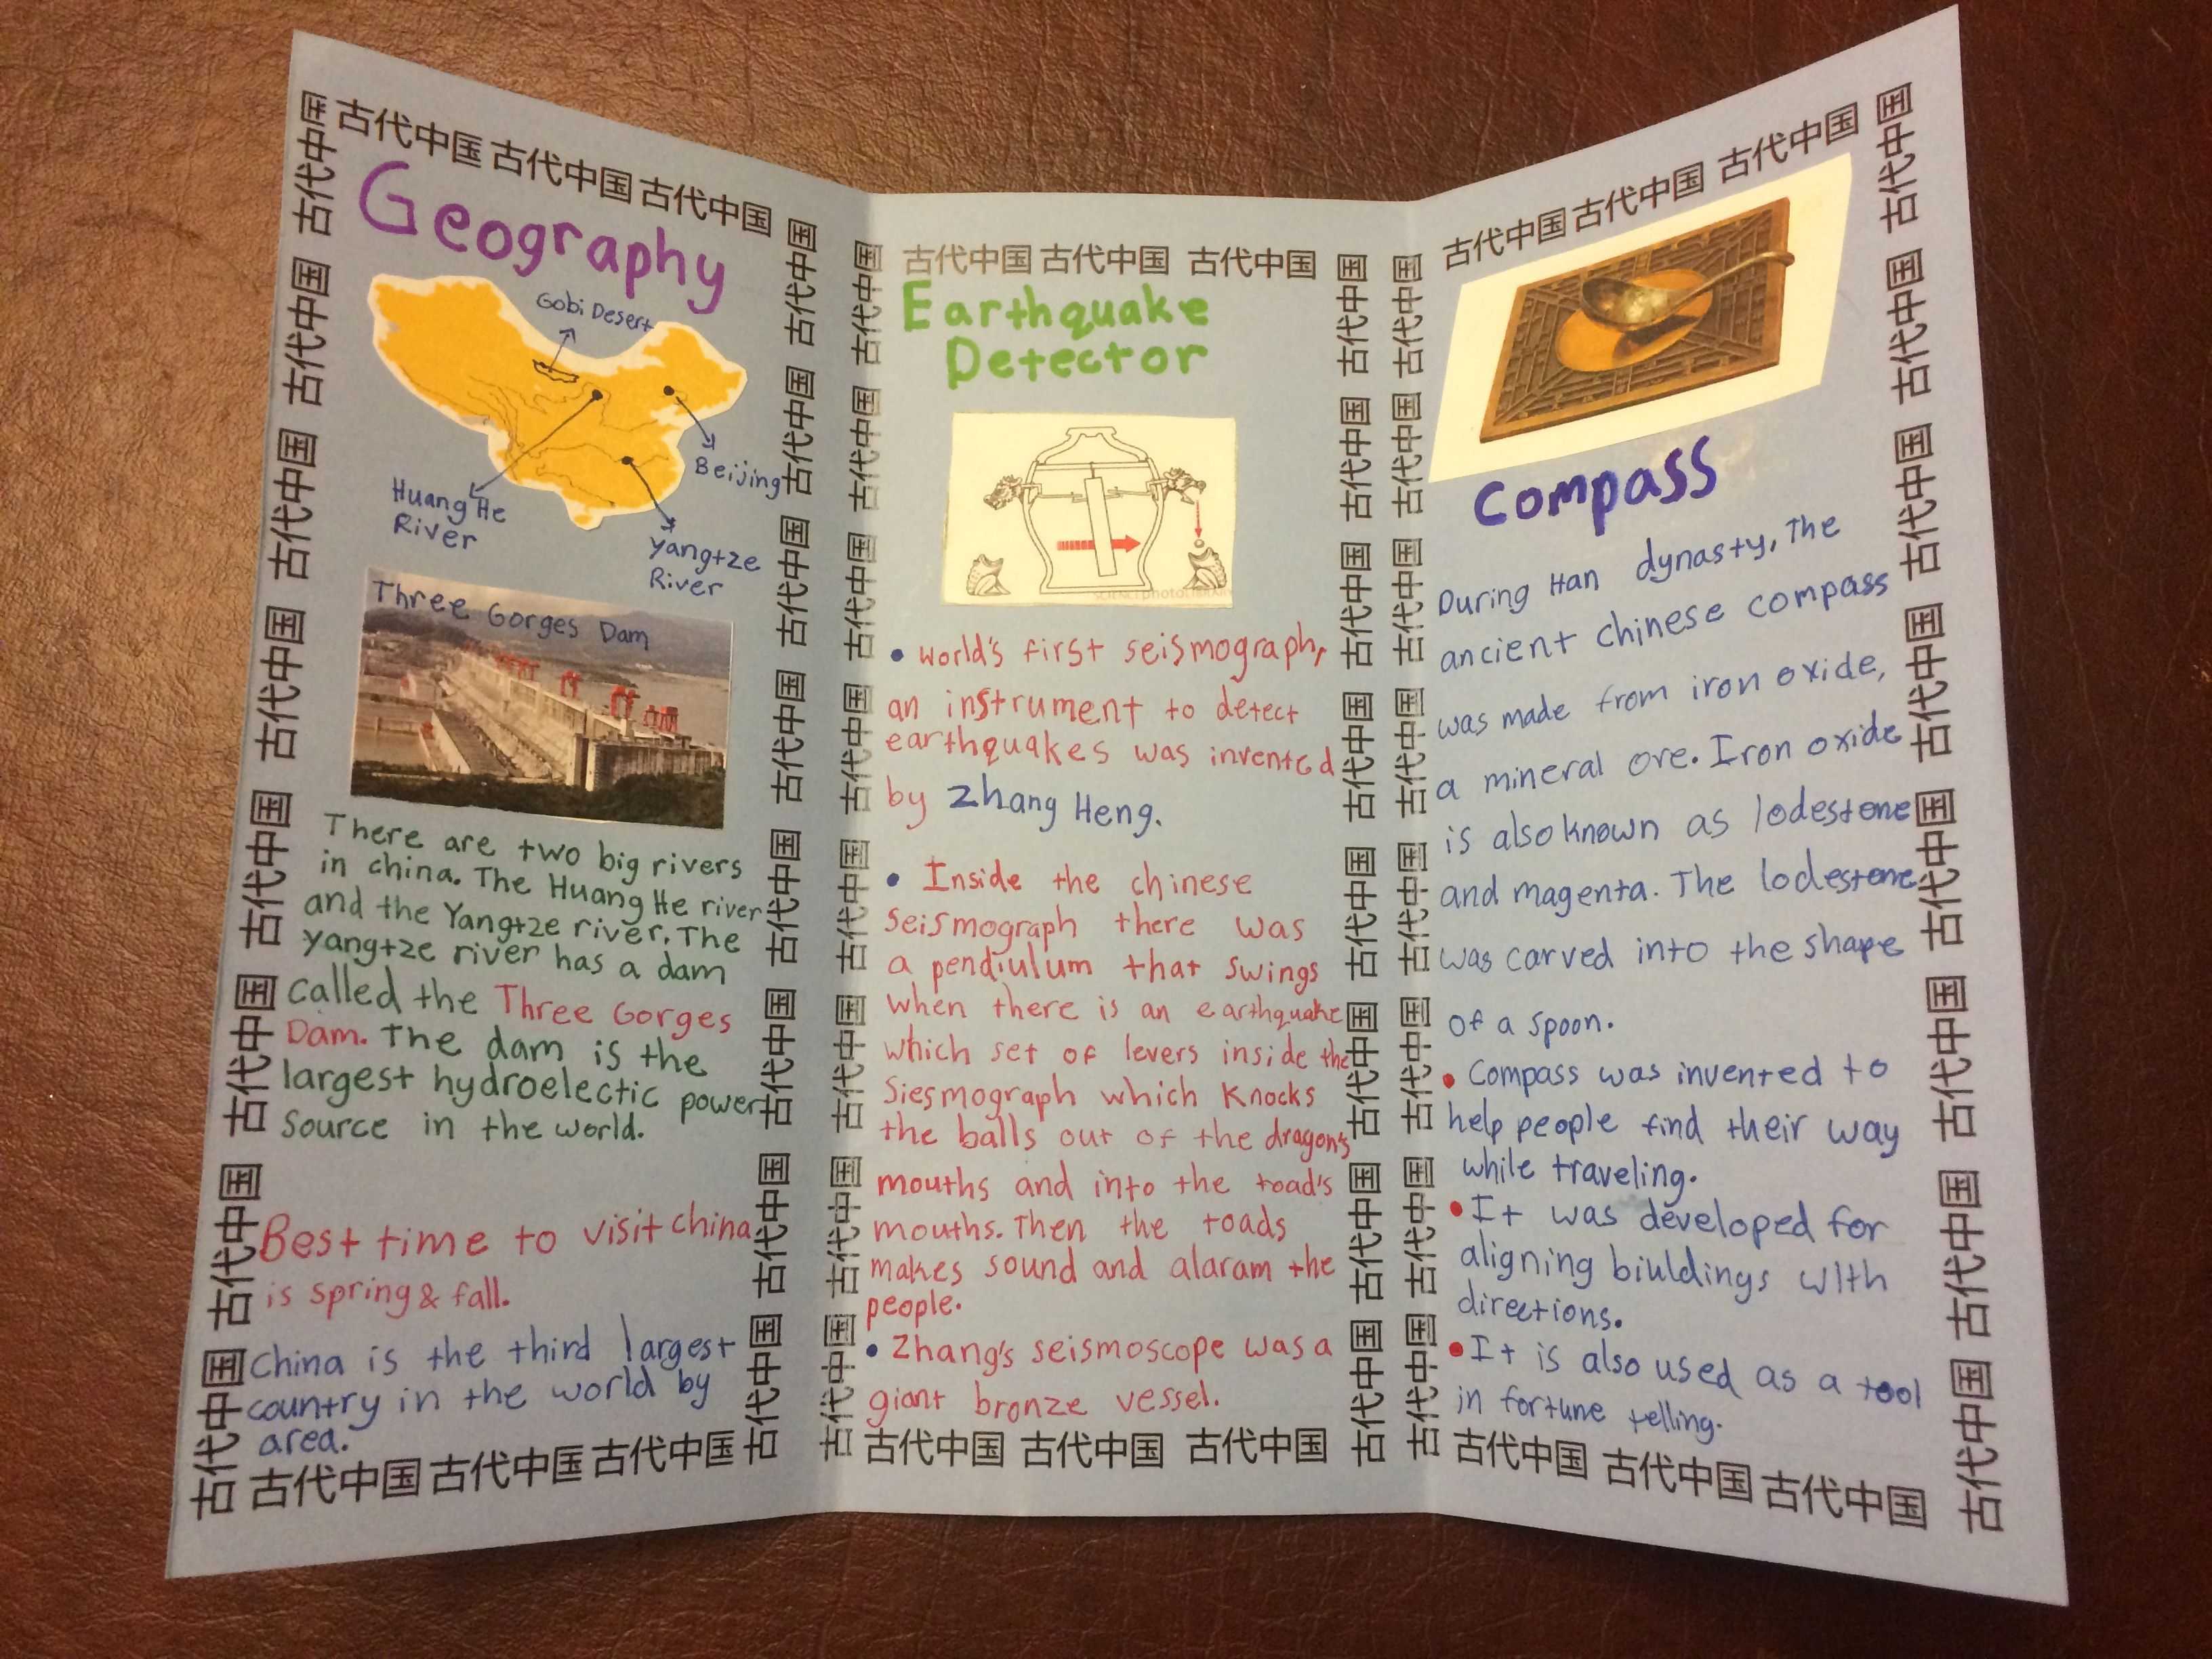 古代中国 古代中国 古代中国
古代中国 古代中国 古代中国 古代中国 古代中国 古代中国 古代中国 古代中国
Geography
Gobi Desert
Beijing
Huang He
River
Yangtze
River
Three Gorges Dam
There are two big rivers
in china. The Huang He river
and the Yangtze river. The
yangtze river has a dam
called the Three Gorges
Dam. The dam is the
largest hydroelectic power
source in the world.
Best time to visit china
is spring & fall.
China is the third largest
country in the world by
area.
古代中国 古代中国 古代中国 古代中国 古代中国 古代中国 古代中国 古代中国
古代中国 古代中国 古代中国
古代中国 古代中国 古代中国
古代中国 古代中国 古代中国 古代中国 古代中国 古代中国 古代中国 古代中国
Earthquake
Detector
SCIENCEphotoLIBRARY
• world's first seismograph,
an instrument to detect
earthquakes was invented
by Zhang Heng.
• Inside the chinese
seismograph there was
a pendiulum that swings
when there is an earthquake
which set of levers inside the
Siesmograph which knocks
the balls out of the dragon's
mouths and into the toad's
mouths. Then the toads
makes sound and alaram the
people.
• Zhang's seismoscope was a
giant bronze vessel.
古代中国 古代中国 古代中国 古代中国 古代中国 古代中国 古代中国 古代中国
古代中国 古代中国 古代中国
古代中国 古代中国 古代中国
古代中国 古代中国 古代中国 古代中国 古代中国 古代中国 古代中国 古代中国
Compass
During Han dynasty, The
ancient chinese compass
was made from iron oxide,
a mineral ore. Iron oxide
is also known as lodestone
and magenta. The lodestone
was carved into the shape
of a spoon.
• Compass was invented to
help people find their way
while traveling.
• It was developed for
aligning biuldings with
directions.
• It is also used as a tool
in fortune telling.
古代中国 古代中国 古代中国 古代中国 古代中国 古代中国 古代中国 古代中国
古代中国 古代中国 古代中国